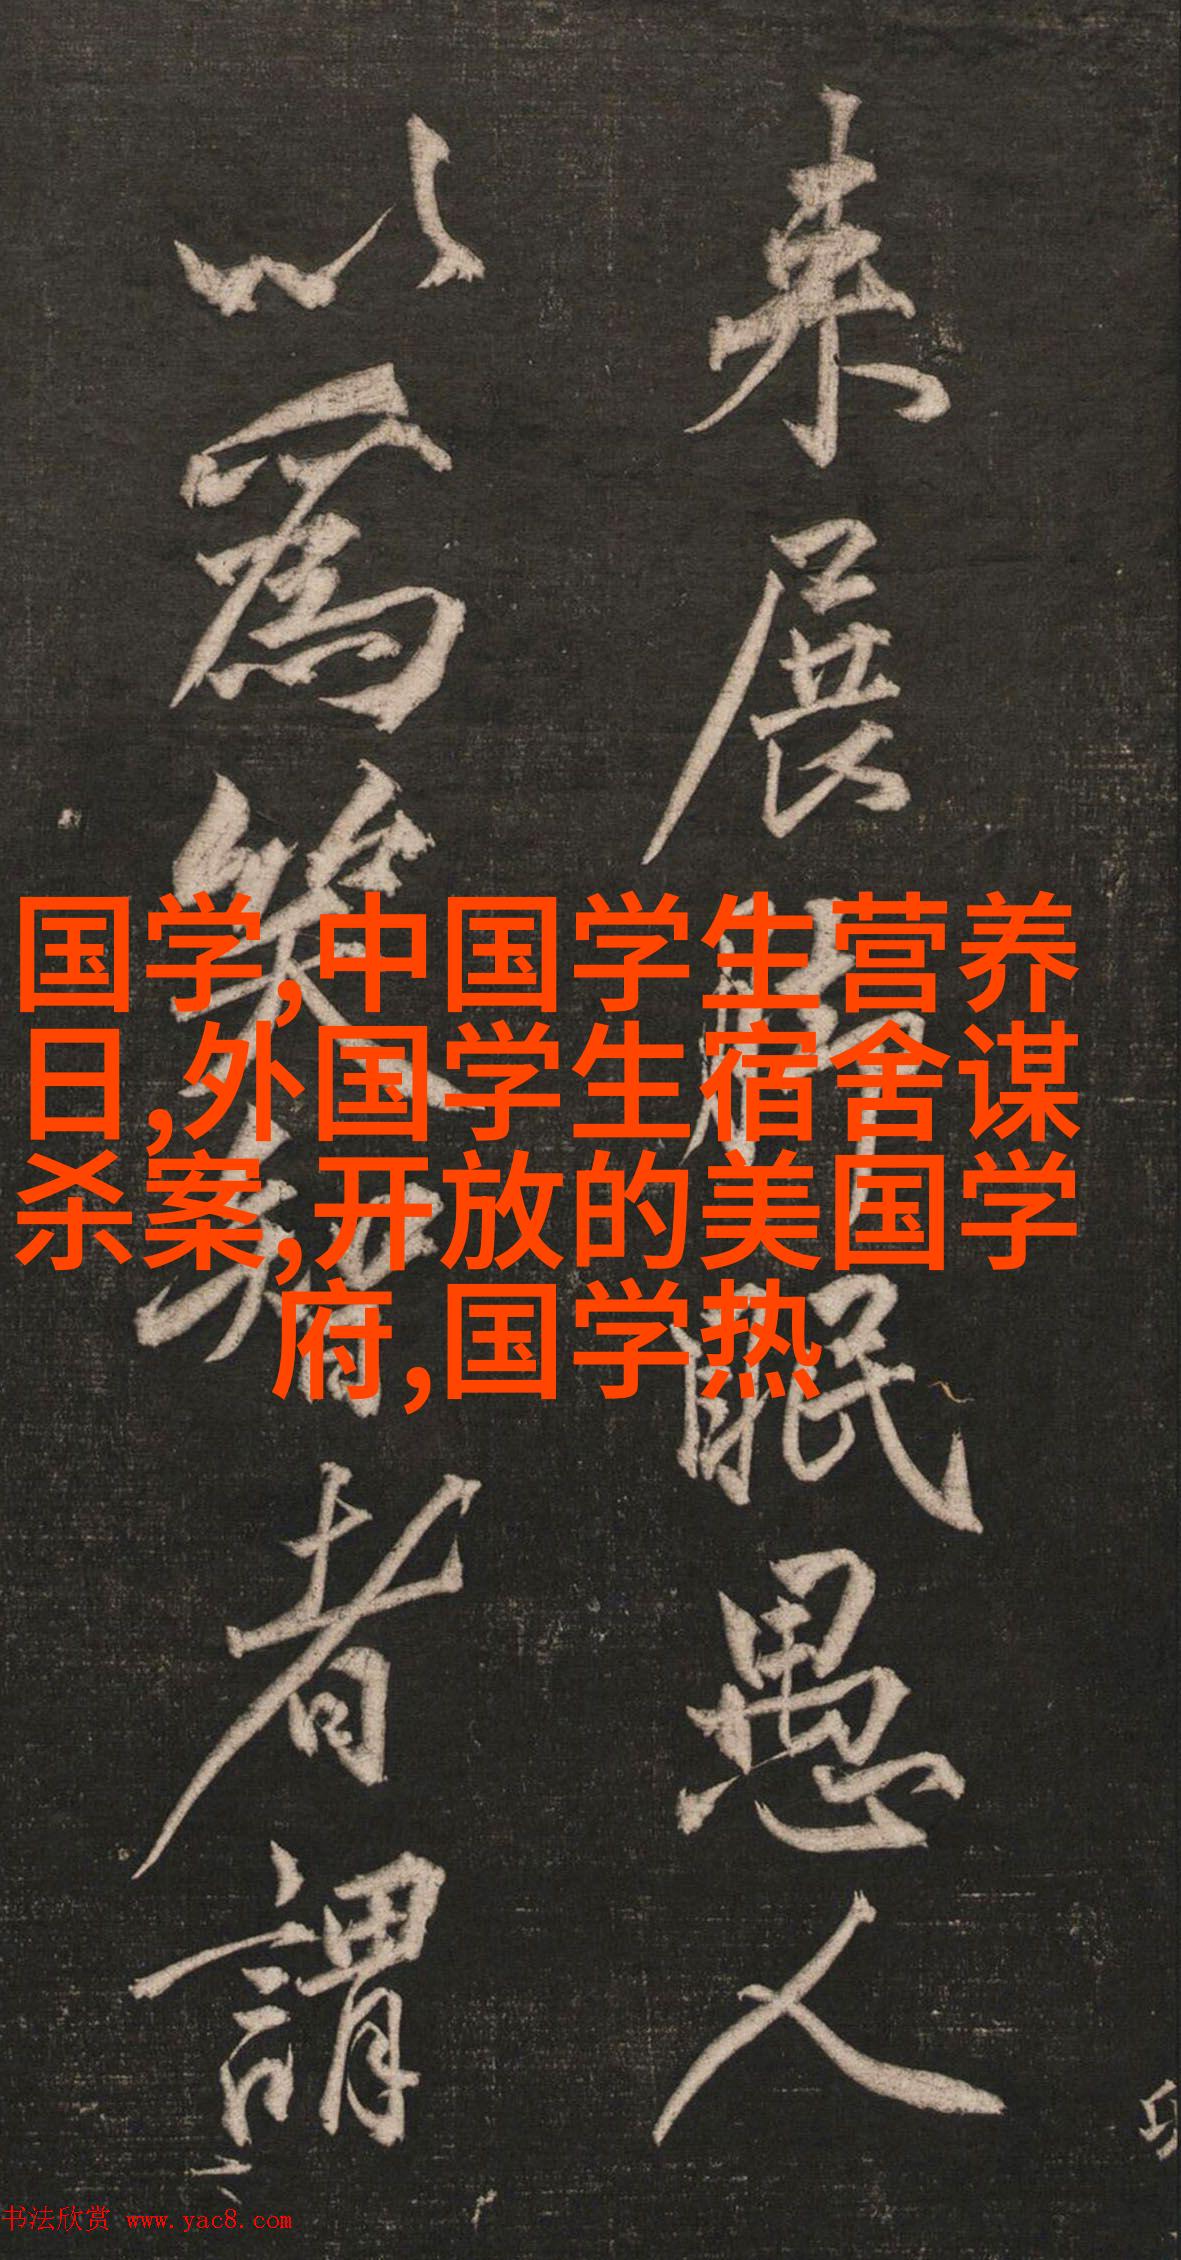 来展脚眠愚人
以為笑智者謂
国学,中国学生营养
日,外国学生宿舍谋
杀案,开放的美国学
府,国学热
书法欣赏 www.yac8.com